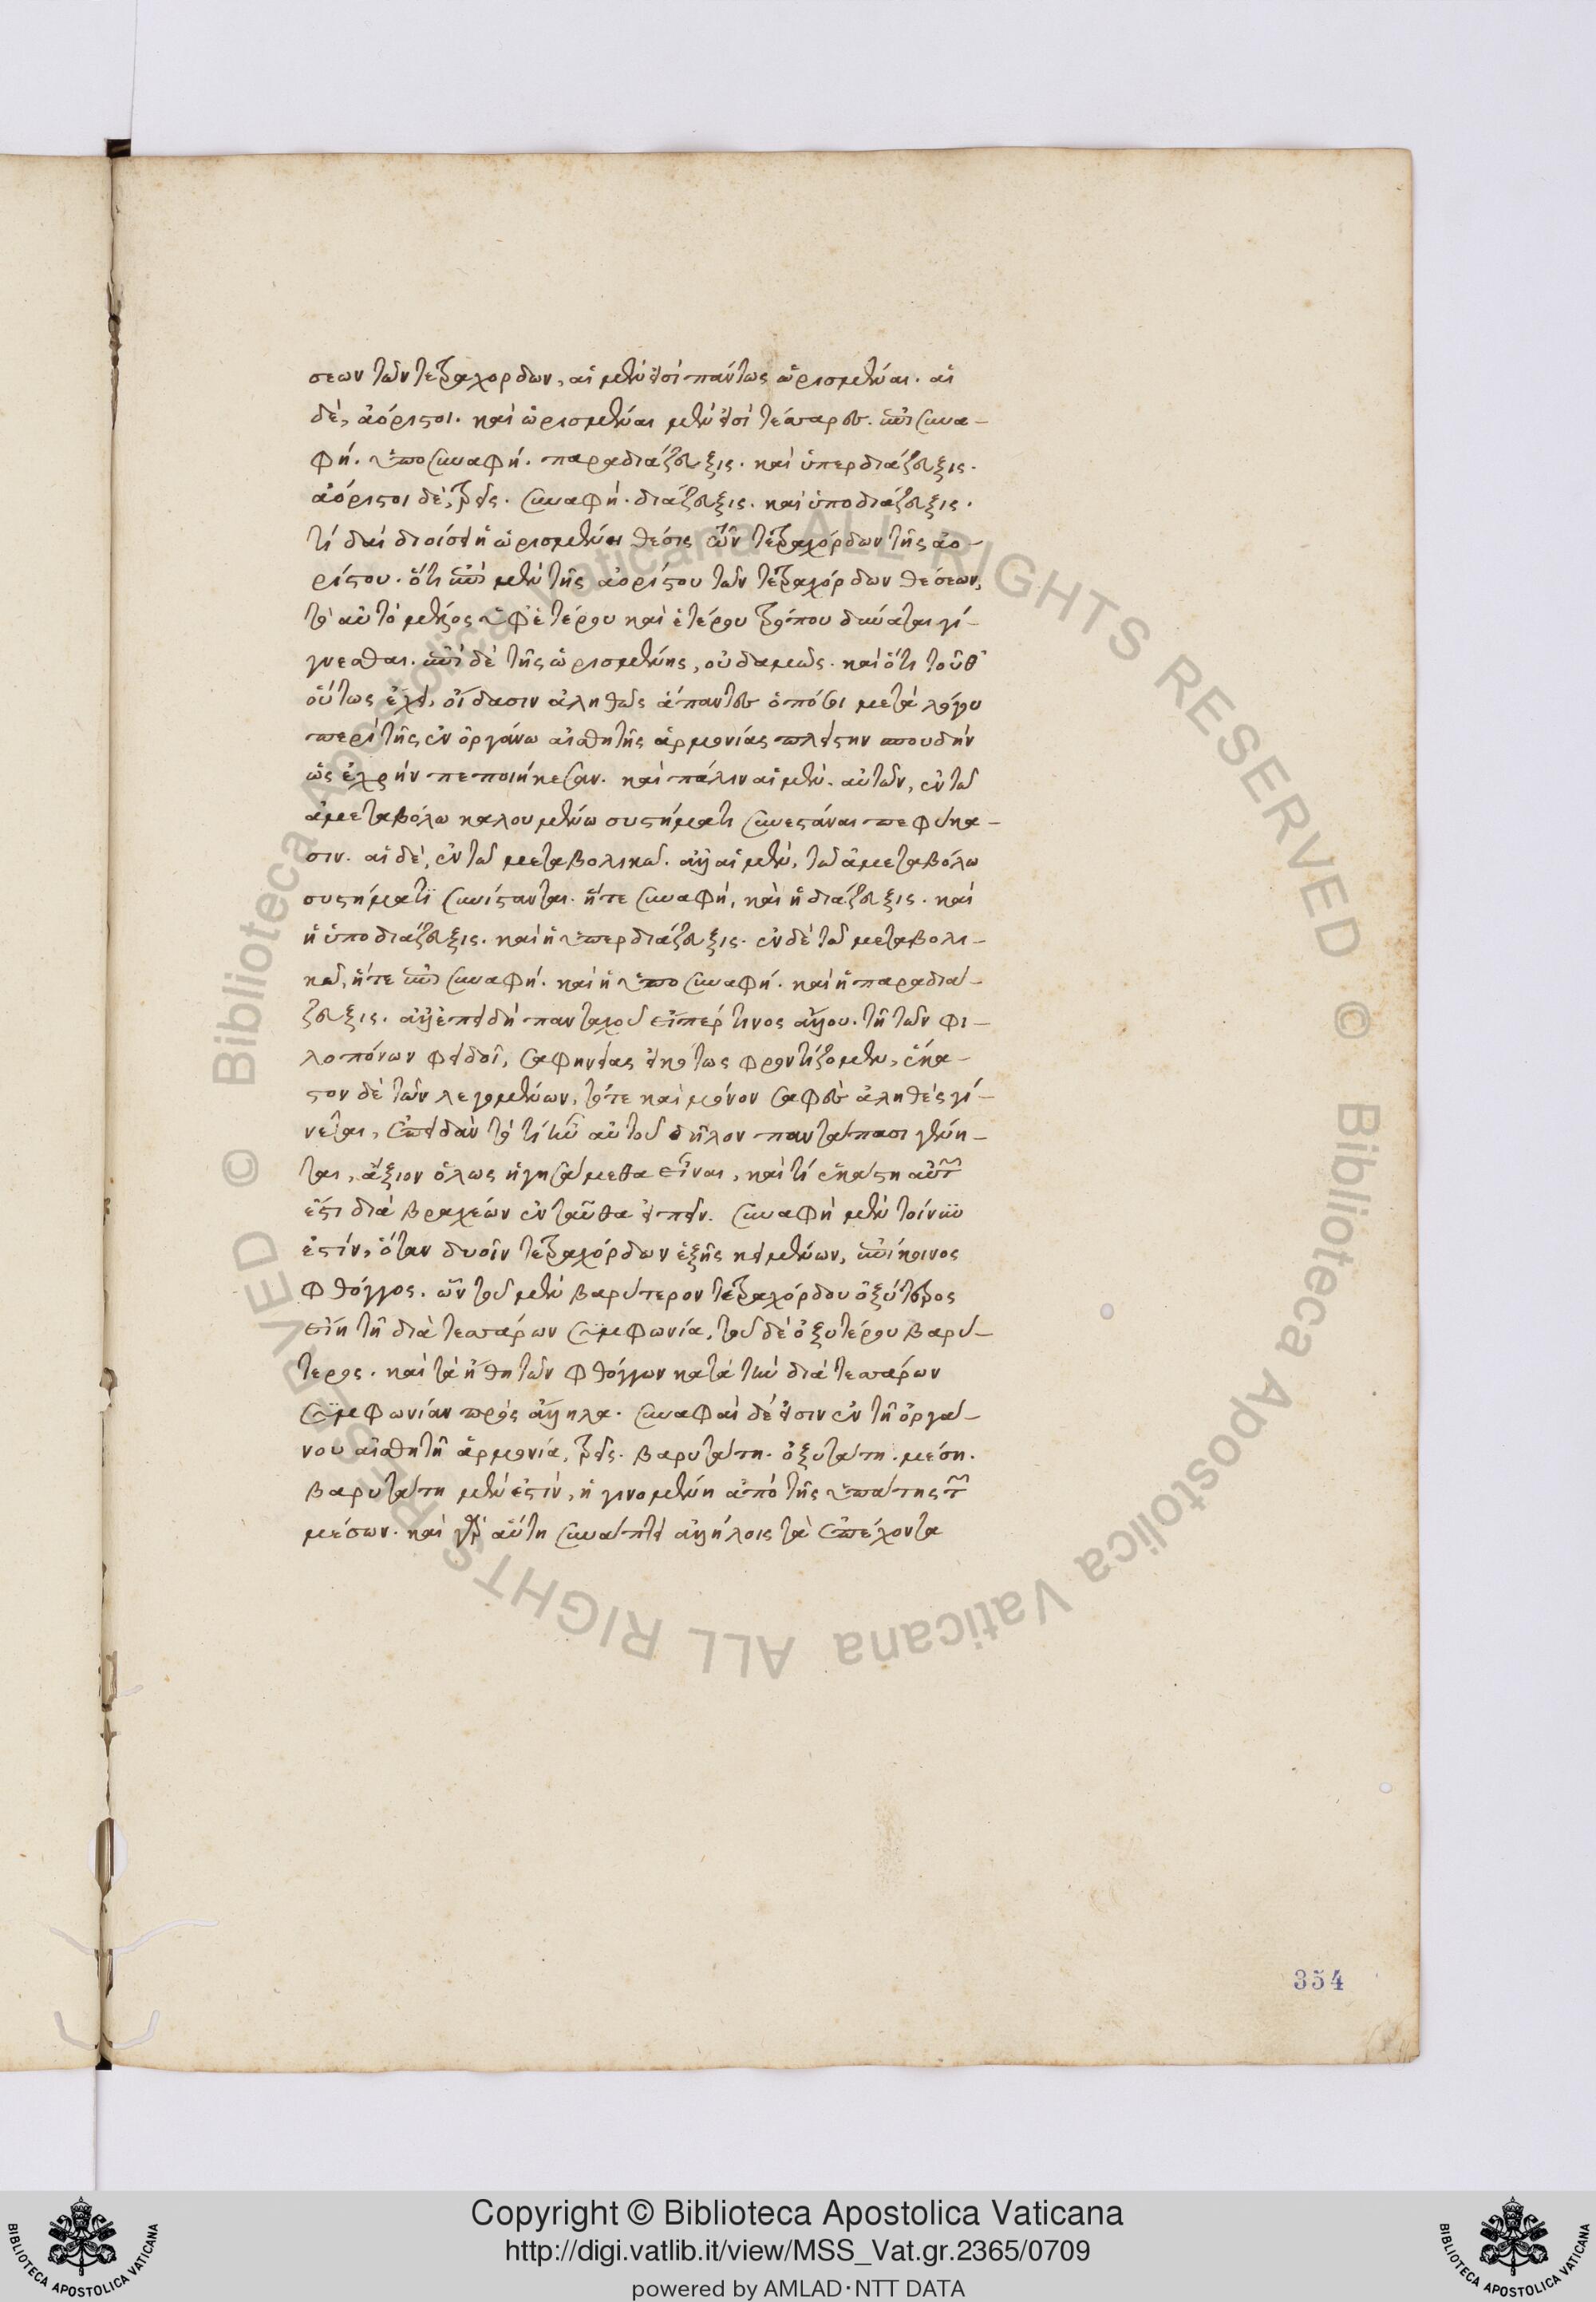 σεων τῶν τετραχορδων, αἱ μὲν εἰσὶ πάντως ὡρισμέναι. αἱ
δὲ, ἀόριστοι. καὶ ὡρισμέναι μὲν εἰσὶ τέσσαρες. ἐπισυνα-
φή. ὑποσυναφή. παραδιάζευξις. καὶ ὑπερδιάζευξις.
ἀόριστοι δὲ, τρεῖς. συναφή. διάζευξις. καὶ ὑποδιάζευξις.
τί δαὶ διοίσει ἡ ὡρισμένη θέσις τῶν τετραχόρδων τῆς ἀο-
ρίστου. ὅτι ἐπὶ μὲν τῆς ἀορίστου τῶν τετραχόρδων θέσεων,
τὸ αὐτὸ μέντος ὑφ' ἑτέρου καὶ ἑτέρου τρόπου δύναται γί-
γνεσθαι. ἐπὶ δὲ τῆς ὡρισμένης, οὐδαμῶς. καὶ ὅτι τοῦθ'
οὕτως ἔχει, οἴδασιν ἀληθῶς ἅπαντες ὁπόσοι μετὰ λόγου
περὶ τῆς ἐν ὀργάνω αἰσθητῆς ἁρμονίας πλείστην σπουδὴν
ὡς ἐχρῆν πεποιήκεσαν. καὶ πάλιν αἱ μὲν. αὐτῶν, ἐν τῶ
ἀμεταβόλω καλουμένω συστήματι συνεστάναι πεφύκα-
σιν. αἱ δὲ, ἐν τῶ μεταβολικῶ. ἀλλ' αἱ μὲν, τῶ ἀμεταβόλω
συστήματι συνίστανται. ἥτε συναφή, καὶ ἡ διάζευξις. καὶ
ἡ ὑποδιάζευξις. καὶ ἡ ὑπερδιάζευξις. ἐν δὲ τῶ μεταβολι-
κῶ, ἥτε ἐπισυναφή. καὶ ἡ ὑποσυναφή. καὶ ἡ παραδιά-
ζευξις. ἀλλ' ἐπειδὴ πανταχοῦ εἴπερ τινος ἄλλου. τῆ τῶν φι-
λοπόνων φειδοῖ, σαφηνείας εἰκότως φροντίζομεν, ἕκα-
στον δὲ τῶν λεγομένων, τότε καὶ μόνον σαφὲς ἀληθές γί-
νεται, ἐπειδὰν τὸ τί ἦν αὐτοῦ δῆλον πανταπασι γένη-
ται, ἄξιον ὅλως ἡγησάμεθα εἶναι, καὶ τί ἑκάστη αὐτῶν
ἔστι διὰ βραχέων ἐνταῦθα εἰπεῖν. συναφὴ μὲν τοίνυν
ἐστίν, ὅταν δυοῖν τετραχόρδων ἑξῆς κειμένων, ἐπίκοινος
φθόγγος. ὢν τοῦ μὲν βαρύτερον τετραχόρδου ὀξύτερος
εἴη τῆ διὰ τεσσάρων συμφωνία, τοῦ δὲ ὀξυτέρου βαρύ-
τερος. καὶ τὰ ἤθη τῶν φθόγγων κατὰ τὴν διὰ τεσσάρων
συμφωνίαν πρὸς ἄλληλα. συναφαὶ δέ εἰσιν ἐν τῆ ὀργά-
νου αἰσθητῆ ἁρμονία, τρεῖς. βαρυτάτη. ὀξυτάτη. μέση.
βαρυτάτη μὲν ἐστὶν, ἡ γινομένη ἀπὸ τῆς ὑπάτης τῶν
μέσων. καὶ γὰρ αὕτη συνάπτει ἀλλήλοις τὰ ἐπέχοντα
354
Copyright © Biblioteca Apostolica Vaticana
http://digi.vatlib.it/view/MSS_Vat.gr.2365/0709
powered by AMLAD·NTT DATA